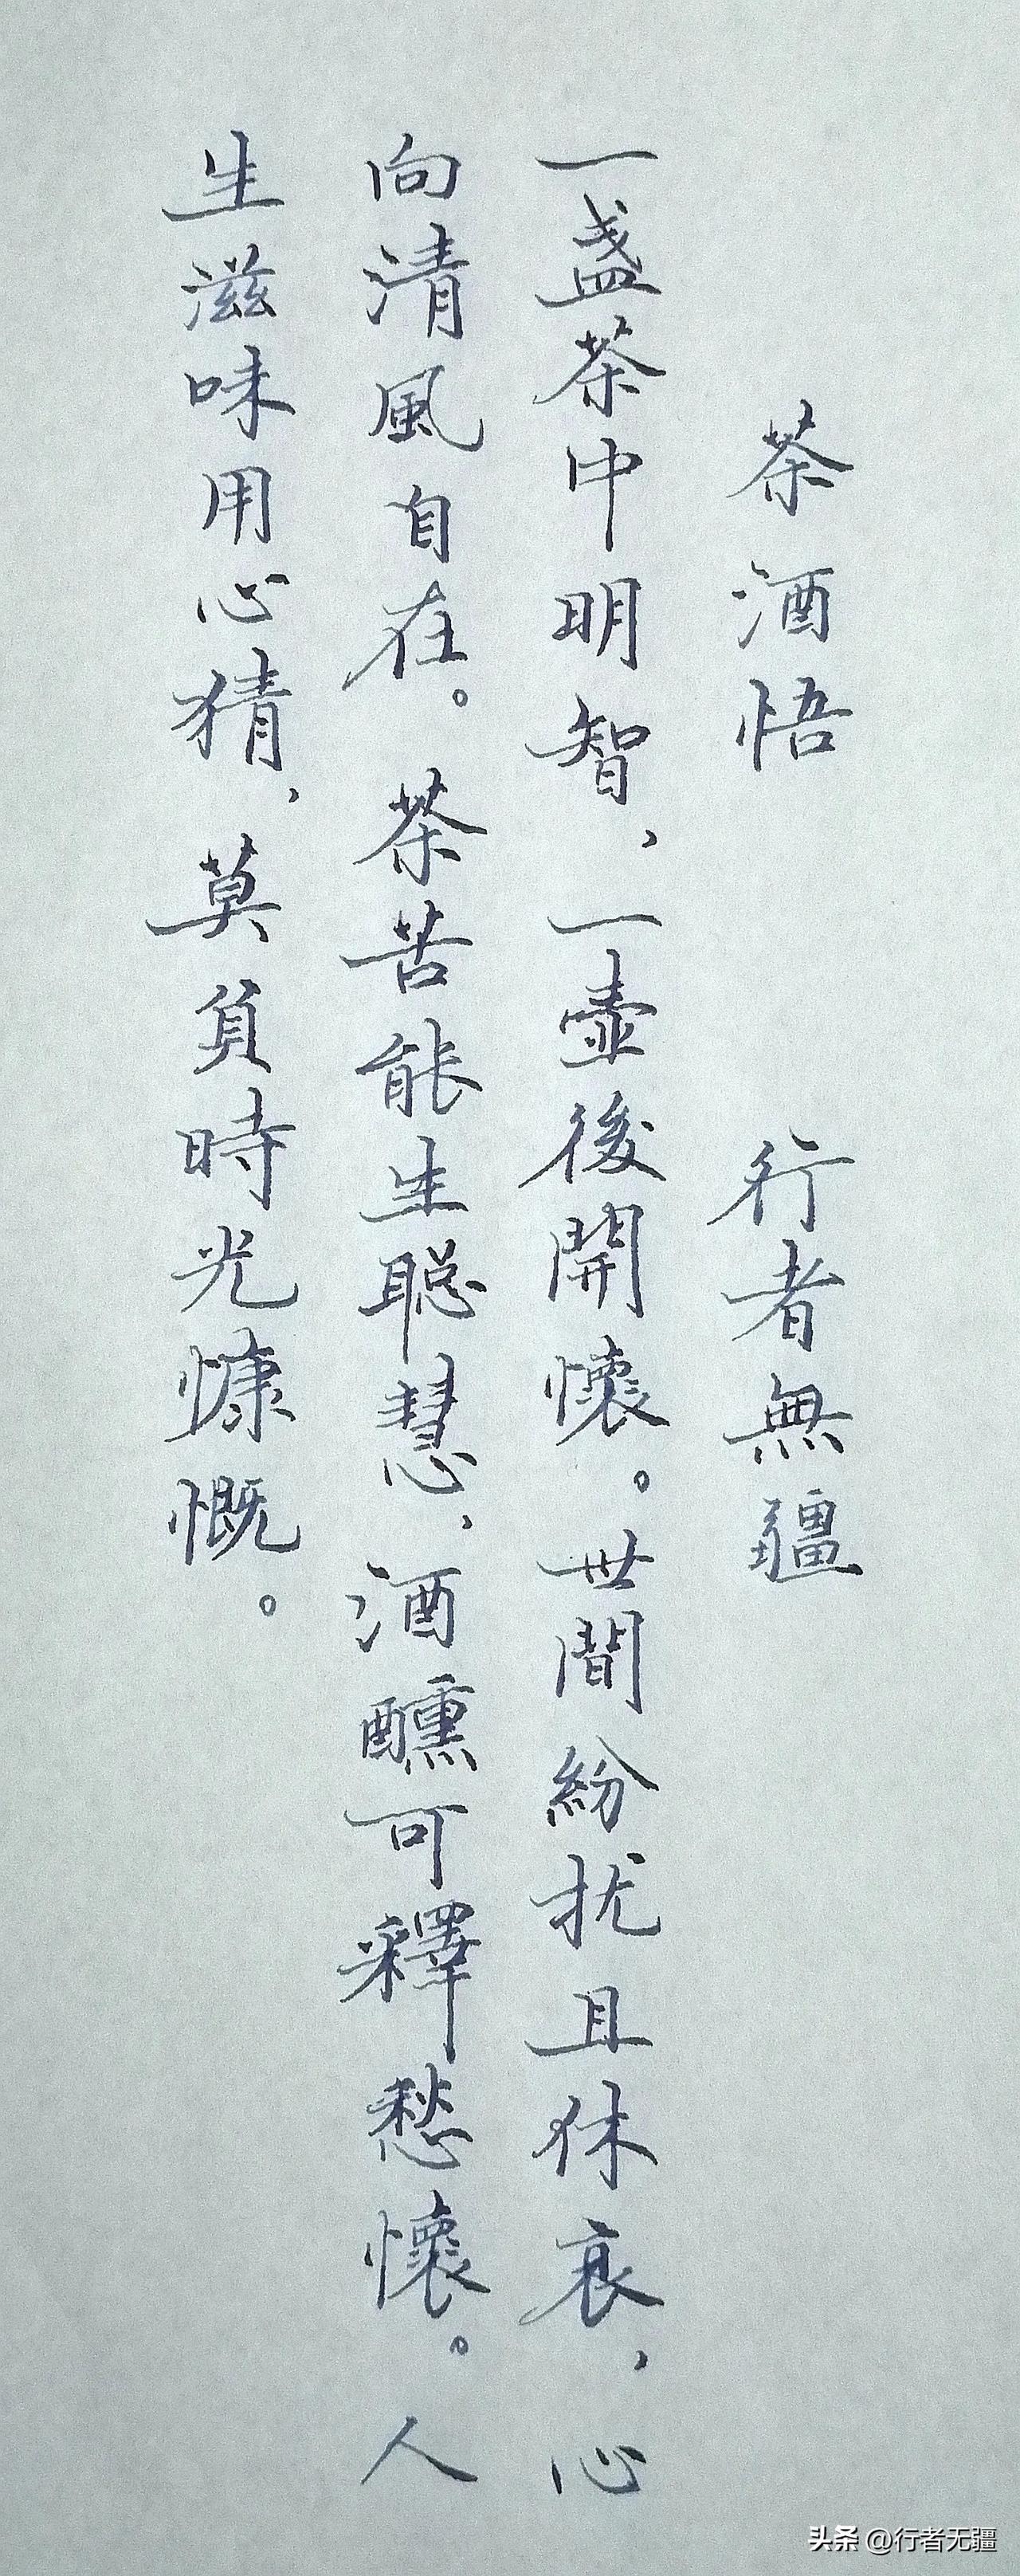 茶酒悟 行者無疆
一盏茶中明智，一壺後開懷。世間紛扰且休哀，心
向清風自在。茶苦能生聪慧，酒醺可釋愁懷。人
生滋味用心猜，莫負時光慷慨。
头条 @行者无疆